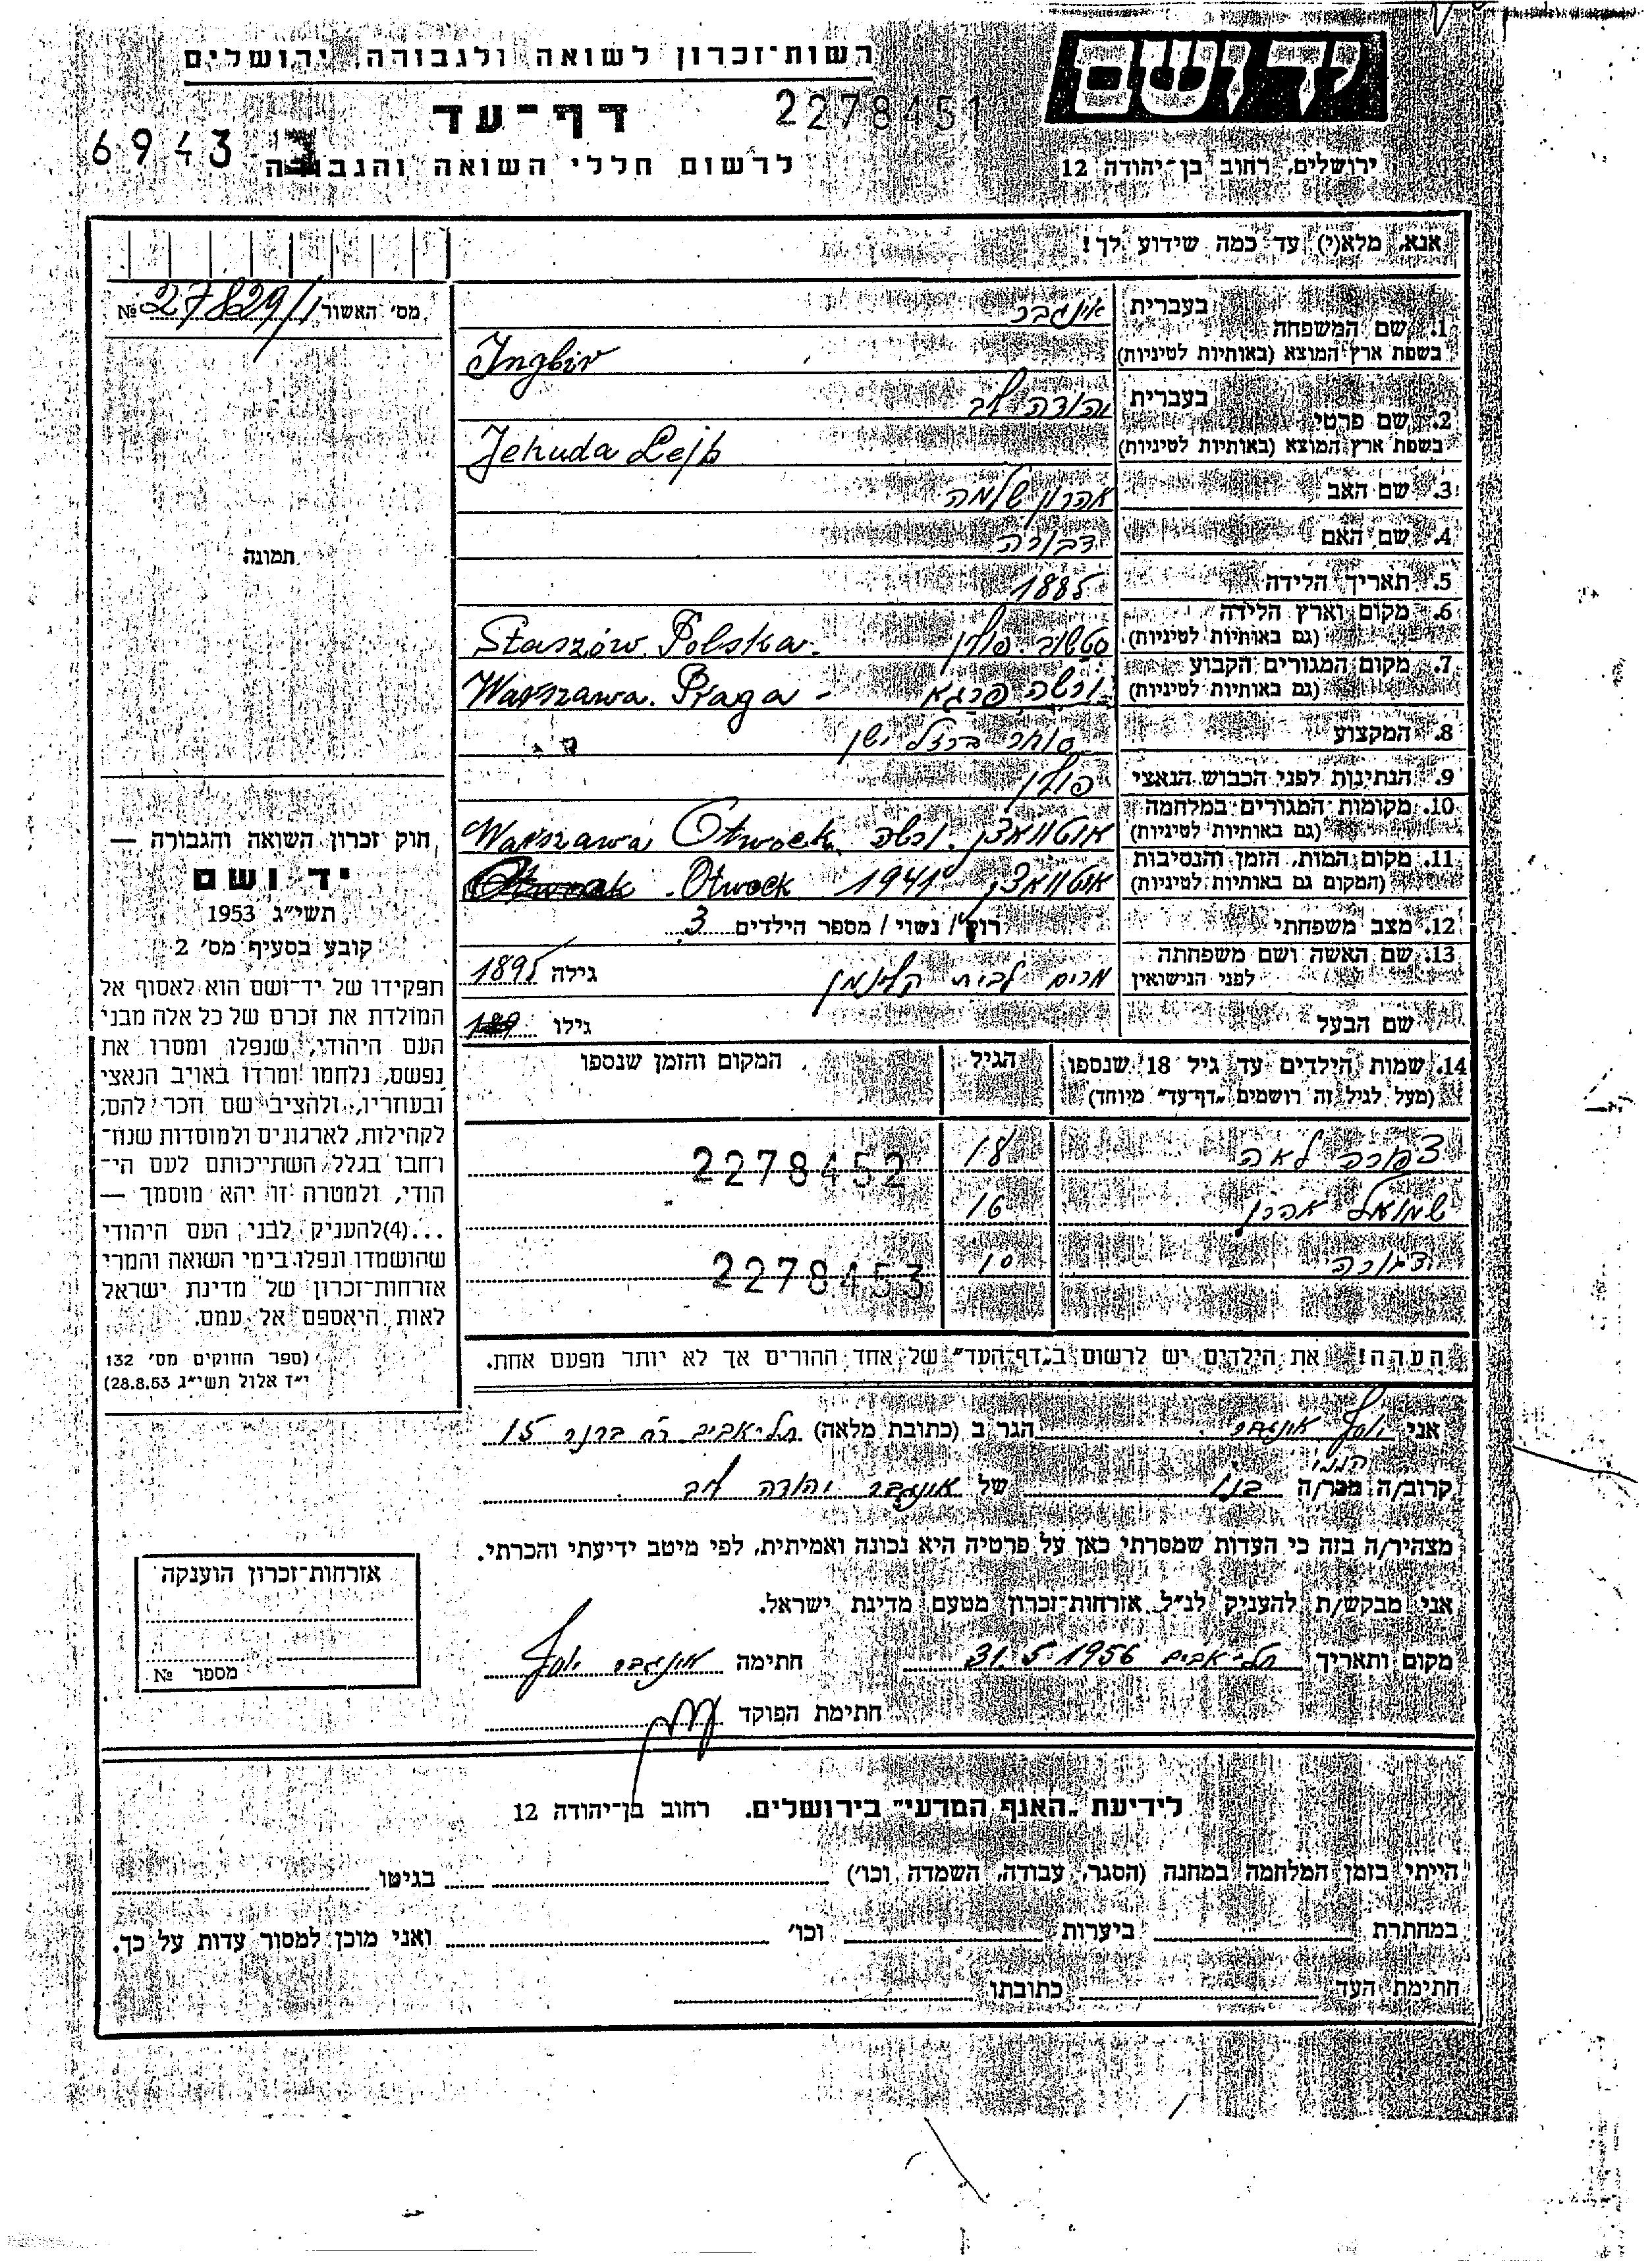 רשות־זכרון לשואה ולגבורה, ירושלים
יד ושם
דף־עד
2278451
6943
לרשום חללי השואה והגבורה
ירושלים, רחוב בן־יהודה 12
אנא, מלא(י) עד כמה שידוע לך!
מס' האשור 27829/1 №
תמונה
1. שם המשפחה בעברית אינגבר
בשפת ארץ המוצא (באותיות לטיניות) Ingbir
2. שם פרטי בעברית יהודה ליב
בשפת ארץ המוצא (באותיות לטיניות) Jehuda Lejb
3. שם האב אהרון שלמה
4. שם האם דבורה
5. תאריך הלידה 1885
6. מקום וארץ הלידה
(גם באותיות לטיניות) סטשוב פולין Staszów. Polska.
7. מקום המגורים הקבוע
(גם באותיות לטיניות) ורשה פרגא Warszawa. Praga -
8. המקצוע סוחר ברזל ישן
9. הנתינות לפני הכבוש הנאצי פולין
10. מקומות המגורים במלחמה
(גם באותיות לטיניות) אוטוואצק. ורשה Warszawa Otwock.
11. מקום המות, הזמן והנסיבות
(המקום גם באותיות לטיניות) אוטוואצק 1941 Otwock
12. מצב משפחתי רווק / נשוי / מספר הילדים 3
13. שם האשה ושם משפחתה
לפני הנישואין מרים לבית קלינמן גילה 1895
שם הבעל גילו
14. שמות הילדים עד גיל 18 שנספו
(מעל לגיל זה רושמים "דף־עד" מיוחד)
הגיל
המקום והזמן שנספו
צפורה לאה 18 2278452
שמואל אהרן 16
דבורה 10 2278453
הערה! את הילדים יש לרשום ב"דף־העד" של אחד ההורים אך לא יותר מפעם אחת.
חוק זכרון השואה והגבורה —
יד ושם
תשי"ג 1953
קובע בסעיף מס' 2
תפקידו של יד־ושם הוא לאסוף אל
המולדת את זכרם של כל אלה מבני
העם היהודי, שנפלו ומסרו את
נפשם, נלחמו ומרדו באויב הנאצי
ובעוזריו, ולהציב שם וזכר להם,
לקהילות, לארגונים ולמוסדות שנח־
רבו בגלל השתייכותם לעם הי־
הודי, ולמטרה זו יהא מוסמך —
...(4) להעניק לבני העם היהודי
שהושמדו ונפלו בימי השואה והמרי
אזרחות־זכרון של מדינת ישראל
לאות היאספם אל עמם.
(ספר החוקים מס' 132
י"ז אלול תשי"ג 28.8.53)
אני יוסף אינגבר הגר ב (כתובת מלאה) תל־אביב רח ברנר 15
קרוב/ה מכר/ה בנו של אינגבר יהודה ליב
מצהיר/ה בזה כי העדות שמסרתי כאן על פרטיה היא נכונה ואמיתית, לפי מיטב ידיעתי והכרתי.
אני מבקש/ת להעניק לנ"ל אזרחות־זכרון מטעם מדינת ישראל.
מקום ותאריך תל־אביב 31.5.1956 חתימה אינגבר יוסף
חתימת הפוקד
אזרחות־זכרון הוענקה
מספר №
לידיעת "האגף המדעי" בירושלים. רחוב בן־יהודה 12
הייתי בזמן המלחמה במחנה (הסגר, עבודה, השמדה וכו') בגיטו
במחתרת ביערות וכו' ואני מוכן למסור עדות על כך.
חתימת העד כתובתו